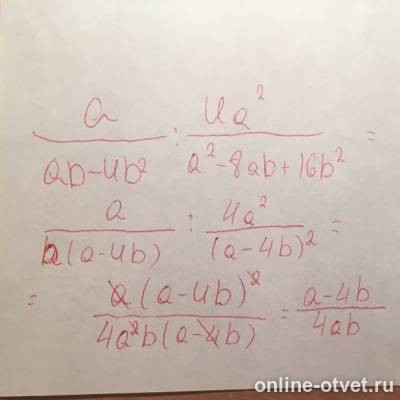 a / (ab-4b²) : 4a² / (a²-8ab+16b²) =
a / (b(a-4b)) : 4a² / (a-4b)² =
= a(a-4b)² / (4a²b(a-4b)) = (a-4b) / (4ab)
online-otvet.ru